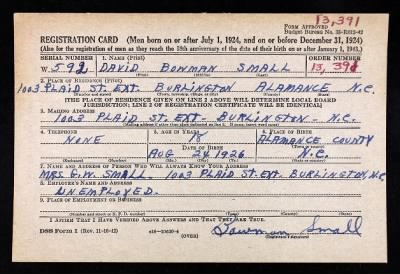 13,391
FORM APPROVED
REGISTRATION CARD (Men born on or after July 1, 1924, and on or before December 31, 1924)
(Also for the registration of men as they reach the 18th anniversary of the date of their birth on or after January 1, 1943.)
SERIAL NUMBER 1. NAME (Print) ORDER NUMBER
W. 592 DAVID BOWMAN SMALL 13,391
(First) (Middle) (Last)
2. PLACE OF RESIDENCE (Print)
1003 PLAID ST. EXT. BURLINGTON ALAMANCE N.C.
(Number and street) (Town, township, village, or city) (County) (State)
[THE PLACE OF RESIDENCE GIVEN ON LINE 2 ABOVE WILL DETERMINE LOCAL BOARD
JURISDICTION; LINE 2 OF REGISTRATION CERTIFICATE WILL BE IDENTICAL]
3. MAILING ADDRESS
1003 PLAID ST. EXT- BURLINGTON- N.C.
4. TELEPHONE 5. AGE IN YEARS 6. PLACE OF BIRTH
NONE 18 ALAMANCE COUNTY
DATE OF BIRTH
AUG 24 1926 N.C.
7. NAME AND ADDRESS OF PERSON WHO WILL ALWAYS KNOW YOUR ADDRESS
MRS. G.W. SMALL- 1003 PLAID ST. EXT- BURLINGTON N.C.
8. EMPLOYER'S NAME AND ADDRESS
UNEMPLOYED.
9. PLACE OF EMPLOYMENT OR BUSINESS
(Number and street or R. F. D. number) (Town) (County) (State)
I AFFIRM THAT I HAVE VERIFIED ABOVE ANSWERS AND THAT THEY ARE TRUE.
DSS Form 1 (Rev. 11-16-42) (OVER) Bowman Small